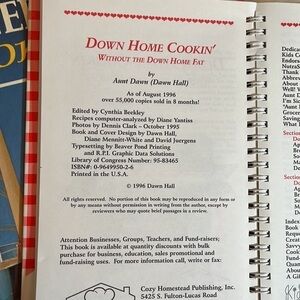 DOWN HOME COOKIN'
WITHOUT THE DOWN HOME FAT
by
Aunt Dawn (Dawn Hall)
As of August 1996
over 55,000 copies sold in 8 months!
Edited by Cynthia Beekley
Recipes computer-analyzed by Diane Yantiss
Photos by Dennis Clark - October 1995
Book and Cover Design by Dawn Hall,
Diane Mennitt-White and David Juergens
Typesetting by Beaver Pond Printing
and R.P.I. Graphic Data Solutions
Library of Congress Number: 95-83465
ISBN#: 0-9649950-2-6
Printed in the U.S.A.
© 1996 Dawn Hall
All rights reserved. No portion of this book may be reproduced in any form or
by any means without permission in writing from the author, except by
reviewers who may quote brief passages in a review.
Attention Businesses, Groups, Teachers, and Fund-raisers:
This book is available at quantity discounts with bulk
purchase for business, education, sales promotional and
fund-raising uses. For more information call, write or fax:
Cozy Homestead Publishing, Inc.
5425 S. Fulton-Lucas Road
Dedica
Cooki
Kids
Endors
NutraS
Thank
Abbrev
About
Well!
"Aunt
I'm Si
"Aunt
Grocer
Saving
Count
Section